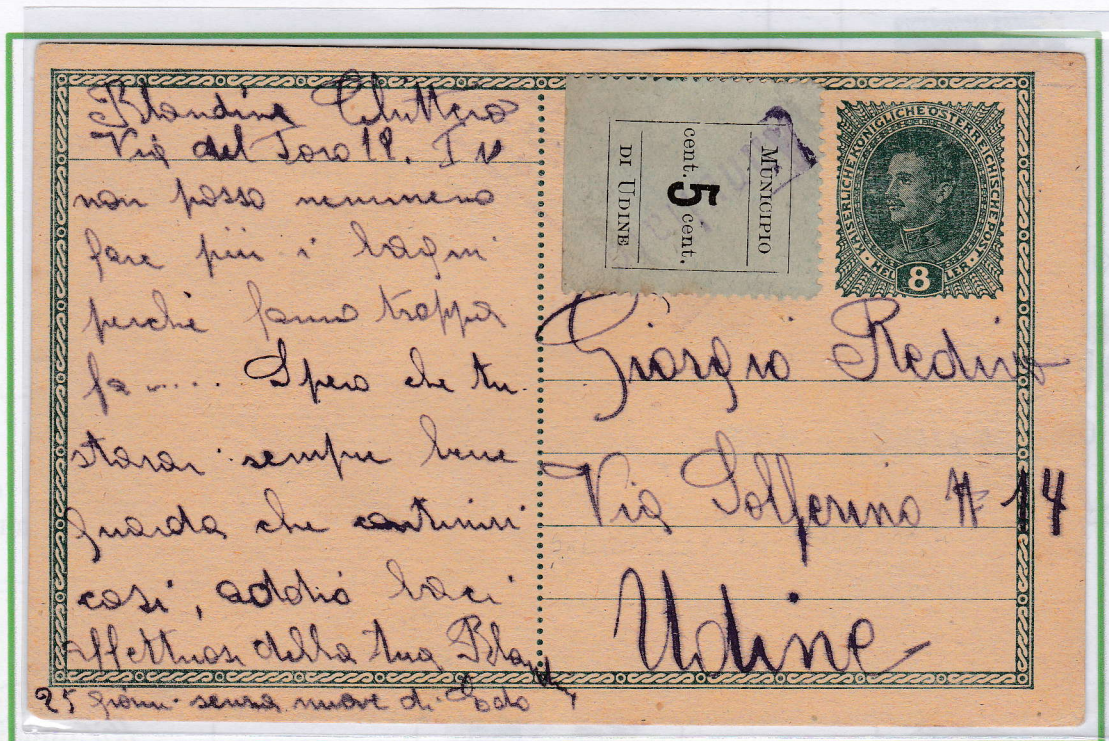 Blandina
Via del Toro 12. I v
non posso nemmeno
fare più i bagni
perché fanno troppa
fa..... Spero che tu
starai sempre bene
guarda che continui
così, addio baci
affettuosi dalla tua Bland
25 giorni senza nuove di Edo
MUNICIPIO
cent. 5 cent.
DI UDINE
KAISERLICHE KÖNIGLICHE ÖSTERREICHISCHE POST
HELLER
8
Giorgio
Via Solferino N 14
Udine